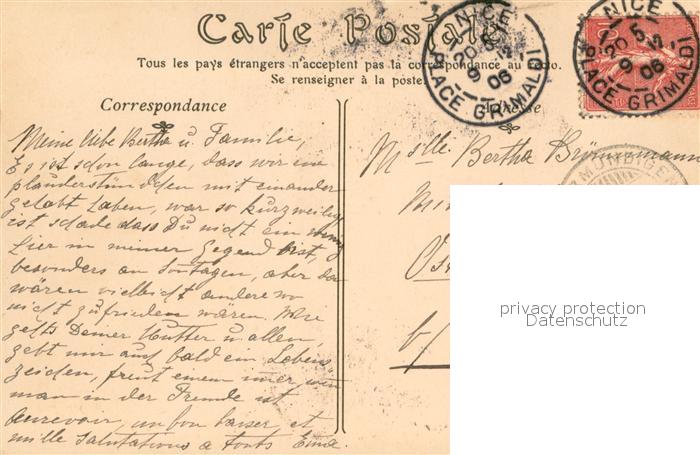 Carte Postale
Tous les pays étrangers n'acceptent pas la correspondance au recto.
Se renseigner à la poste.
NICE
PLACE GRIMALDI
20 5
9 06
NICE
PLACE GRIMALDI
20 5
9 06
Correspondance
Adresse
Meine liebe Bertha u. Familie,
Es ist schon lange, dass wir ein
plauderstündchen mit einander
gehabt haben, war so kurzweilig
ist schade dass Du nicht ein wenig
hier in meiner Gegend bist,
besonders an Sontagen, aber da
wären vielleicht andere wo
nicht zufrieden wären. Wie
gehts Deiner Mutter u. allen,
gebt mir auch bald ein Lebens-
zeichen, freut einem immer, wenn
man in der Fremde ist
Aurevoir, un bon baiser, et
mille salutations a touts Emma.
Mslle. Bertha
privacy protection
Datenschutz